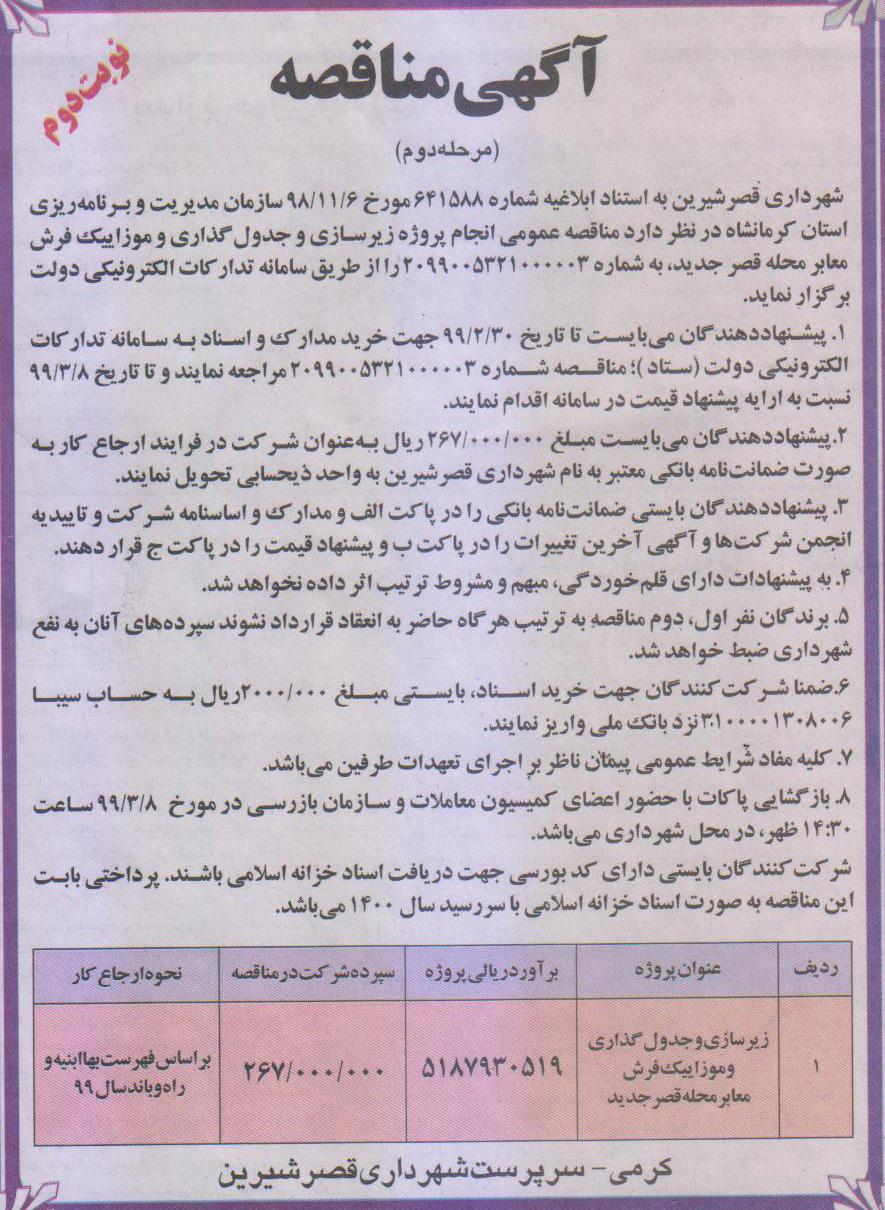 آگهی مناقصه
نوبت دوم
(مرحله دوم)
شهرداری قصرشیرین به استناد ابلاغیه شماره ۶۴۱۵۸۸ مورخ ۹۸/۱۱/۶ سازمان مدیریت و برنامه‌ریزی
استان کرمانشاه در نظر دارد مناقصه عمومی انجام پروژه زیرسازی و جدول گذاری و موزاییک فرش
معابر محله قصر جدید، به شماره ۲۰۹۹۰۰۵۳۲۱۰۰۰۰۰۳ را از طریق سامانه تدارکات الکترونیکی دولت
برگزار نماید.
۱. پیشنهاددهندگان می‌بایست تا تاریخ ۹۹/۲/۳۰ جهت خرید مدارک و اسناد به سامانه تدارکات
الکترونیکی دولت (ستاد)؛ مناقصه شماره ۲۰۹۹۰۰۵۳۲۱۰۰۰۰۰۳ مراجعه نمایند و تا تاریخ ۹۹/۳/۸
نسبت به ارایه پیشنهاد قیمت در سامانه اقدام نمایند.
۲. پیشنهاددهندگان می‌بایست مبلغ ۲۶۷/۰۰۰/۰۰۰ ریال به‌عنوان شرکت در فرایند ارجاع کار به
صورت ضمانت‌نامه بانکی معتبر به نام شهرداری قصرشیرین به واحد ذیحسابی تحویل نمایند.
۳. پیشنهاددهندگان بایستی ضمانت‌نامه بانکی را در پاکت الف و مدارک و اساسنامه شرکت و تاییدیه
انجمن شرکت‌ها و آگهی آخرین تغییرات را در پاکت ب و پیشنهاد قیمت را در پاکت ج قرار دهند.
۴. به پیشنهادات دارای قلم‌خوردگی، مبهم و مشروط ترتیب اثر داده نخواهد شد.
۵. برندگان نفر اول، دوم مناقصه به ترتیب هرگاه حاضر به انعقاد قرارداد نشوند سپرده‌های آنان به نفع
شهرداری ضبط خواهد شد.
۶. ضمنا شرکت کنندگان جهت خرید اسناد، بایستی مبلغ ۲۰۰۰/۰۰۰ ریال به حساب سیبا
۳۱۰۰۰۰۱۳۰۸۰۰۶ نزد بانک ملی واریز نمایند.
۷. کلیه مفاد شرایط عمومی پیمان ناظر بر اجرای تعهدات طرفین می‌باشد.
۸. بازگشایی پاکات با حضور اعضای کمیسیون معاملات و سازمان بازرسی در مورخ ۹۹/۳/۸ ساعت
۱۴:۳۰ ظهر، در محل شهرداری می‌باشد.
شرکت کنندگان بایستی دارای کد بورسی جهت دریافت اسناد خزانه اسلامی باشند. پرداختی بابت
این مناقصه به صورت اسناد خزانه اسلامی با سررسید سال ۱۴۰۰ می‌باشد.
ردیف
عنوان پروژه
برآورد ریالی پروژه
سپرده شرکت در مناقصه
نحوه ارجاع کار
۱
زیرسازی و جدول گذاری
و موزاییک فرش
معابر محله قصر جدید
۵۱۸۷۹۳۰۵۱۹
۲۶۷/۰۰۰/۰۰۰
براساس فهرست بها ابنیه و
راه و باند سال ۹۹
کرمی - سرپرست شهرداری قصرشیرین